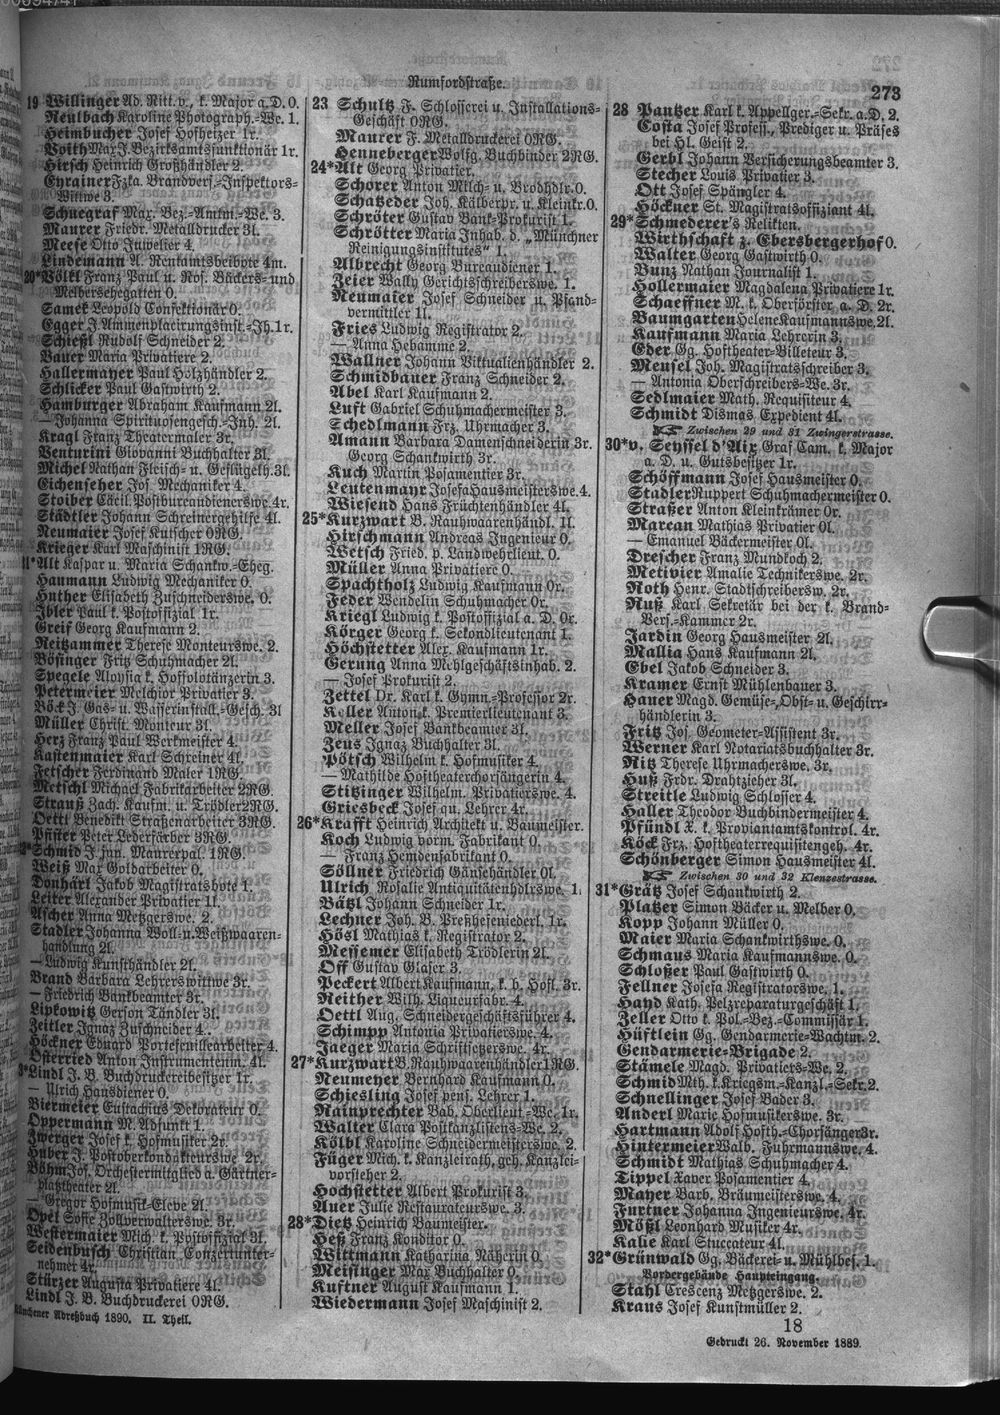 Rumfordstraße.
273
19 Willinger Ad. Ritt. v., k. Major a. D. 0.
Neulbach Karoline Photograph.-We. 1.
Heimbucher Josef Hofheizer 1r.
Voith Max J. Bezirksamtsfunktionär 1r.
Hirsch Heinrich Großhändler 2.
Eyrainer Fzka. Brandvers.-Inspektors-
Wittwe 3.
Schuegraf Max. Bez.-Amtm.-We. 3.
Maurer Friedr. Metalldrucker 3l.
Meese Otto Juwelier 4.
Lindemann A. Rentamtsbeibote 4m.
20*Völkl Franz Paul u. Ros. Bäckers- und
Melbersehegatten 0.
Samek Leopold Confektionär 0.
Egger J. Ammenplacirungsinst.-Jh. 1r.
Schießl Rudolf Schneider 2.
Bauer Maria Privatiere 2.
Hallermayer Paul Holzhändler 2.
Schlicker Paul Gastwirth 2.
Hamburger Abraham Kaufmann 2l.
— Johanna Spirituosengesch.-Inh. 2l.
Kragl Franz Theatermaler 3r.
Venturini Giovanni Buchhalter 3l.
Michel Nathan Fleisch- u. Geflügelh. 3l.
Eichenseher Jos. Mechaniker 4.
Stoiber Cäcil. Postbureaudienerswe. 4r.
Städtler Johann Schreinergehilfe 4l.
Neumaier Josef Kutscher 0RG.
Krieger Karl Maschinist 1RG.
1*Alt Kaspar u. Maria Schankw.-Eheg.
Haumann Ludwig Mechaniker 0.
Huther Elisabeth Zuschneiderswe. 0.
Ibler Paul k. Postoffizial 1r.
Greif Georg Kaufmann 2.
Reitzammer Therese Monteurswe. 2.
Bösinger Fritz Schuhmacher 2l.
Spegele Aloysia k. Hofsolotänzerin 3.
Petermeier Melchior Privatier 3.
Böck J. Gas- u. Wasserinstall.-Gesch. 3l
Müller Christ. Monteur 3l.
Herz Franz Paul Werkmeister 4.
Kastenmaier Karl Schreiner 4l.
Fetscher Ferdinand Maler 1RG.
Metschl Michael Fabrikarbeiter 2RG.
Strauß Zach. Kaufm. u. Trödler 2RG.
Oettl Benedikt Straßenarbeiter 3RG.
Pfister Peter Lederfärber 3RG.
*Schmid J. jun. Maurerpal. 1RG.
Weiß Max Goldarbeiter 0.
Donhärl Jakob Magistratsbote 1.
Leiter Alexander Privatier 1l.
Ascher Anna Metzgerswe. 2.
Stadler Johanna Woll- u. Weißwaaren-
handlung 2l.
— Ludwig Kunsthändler 2l.
Brand Barbara Lehrerswittwe 3r.
— Friedrich Bankbeamter 3r.
Lipkowitz Gerson Tändler 3l.
Zeitler Ignaz Zuschneider 4.
Höckner Eduard Portefeuillearbeiter 4.
Osterried Anton Instrumentenm. 4l.
3*Lindl J. B. Buchdruckereibesitzer 1r.
— Ulrich Hausdiener 0.
Biermeier Eustachius Dekorateur 0.
Oppermann M. Adjunkt 1.
Zwerger Josef k. Hofmusiker 2r.
Huber J. Postoberkondukteurswe. 2r.
Böhm Jos. Orchestermitglied a. Gärtner-
platztheater 2l.
— Gregor Hofmusik-Eleve 2l.
Opel Sofie Zollverwalterswe. 3r.
Westermaier Mich. k. Postoffizial 3l.
Seidenbusch Christian Conzertunter-
nehmer 4r.
Stürzer Augusta Privatiere 4l.
Lindl J. B. Buchdruckerei 0RG.
Münchener Adreßbuch 1890. II. Theil.
23 Schultz F. Schlosserei u. Installations-
Geschäft 0RG.
Maurer F. Metalldruckerei 0RG.
Henneberger Wolfg. Buchbinder 2RG.
24*Alt Georg Privatier.
Schorer Anton Milch- u. Brodhdlr. 0.
Schatzeder Joh. Kälberpr. u. Kleinkr. 0.
Schröter Gustav Bank-Prokurist 1.
Schrötter Maria Inhab. d. „Münchner
Reinigungsinstitutes“ 1.
Albrecht Georg Bureaudiener 1.
Zeier Wally Gerichtsschreiberswe. 1.
Neumaier Josef Schneider u. Pfand-
vermittler 1l.
Fries Ludwig Registrator 2.
— Anna Hebamme 2.
Wallner Johann Viktualienhändler 2.
Schmidbauer Franz Schneider 2.
Abel Karl Kaufmann 2.
Luft Gabriel Schuhmachermeister 3.
Schedlmann Frz. Uhrmacher 3.
Amann Barbara Damenschneiderin 3r.
Georg Schankwirth 3r.
Kuch Martin Posamentier 3r.
Leutenmayr Josefa Hausmeisterswe. 4.
Wiesend Hans Früchtenhändler 4l.
25*Kurzwart B. Rauhwaarenhändl. 1l.
Hirschmann Andreas Ingenieur 0.
Wetsch Fried. p. Landwehrlieut. 0.
Müller Anna Privatiere 0.
Spachtholz Ludwig Kaufmann 0r.
Feder Wendelin Schuhmacher 0r.
Kriegl Ludwig k. Postoffizial a. D. 0r.
Körger Georg k. Sekondlieutenant 1.
Höchstetter Alex. Kaufmann 1r.
Gerung Anna Mehlgeschäftsinhab. 2.
— Josef Prokurist 2.
Zettel Dr. Karl k. Gymn.-Professor 2r.
Keller Anton k. Premierlieutenant 3.
Meller Josef Bankbeamter 3l.
Zeus Ignaz Buchhalter 3l.
Pötsch Wilhelm k. Hofmusiker 4.
— Mathilde Hoftheaterchorsängerin 4.
Stitzinger Wilhelm. Privatierswe. 4.
Griesbeck Josef qu. Lehrer 4r.
26*Krafft Heinrich Architekt u. Baumeister.
Koch Ludwig vorm. Fabrikant 0.
— Franz Hemdenfabrikant 0.
Söllner Friedrich Gänsehändler 0l.
Ulrich Rosalie Antiquitätenhdlrswe. 1.
Bätzl Johann Schneider 1r.
Lechner Joh. B. Preßhefeniederl. 1r.
Hösl Mathias k. Registrator 2.
Messemer Elisabeth Trödlerin 2l.
Off Gustav Glaser 3.
Peckert Albert Kaufmann, k. b. Hofl. 3r.
Neither Wilh. Liqueurfabr. 4.
Oettl Aug. Schneidergeschäftsführer 4.
Schimpp Antonia Privatierswe. 4.
Jaeger Maria Schriftsetzerswe. 4r.
27*Kurzwart B. Rauhwaarenhändler 1RG.
Neumeyer Bernhard Kaufmann 0.
Schiesling Josef pens. Lehrer 1.
Rainprechter Bab. Oberlieut.-We. 1r.
Walter Clara Postkanzlistens-We. 2.
Kölbl Karoline Schneidermeisterswe. 2.
Füger Mich. k. Kanzleirath, geh. Kanzlei-
vorsteher 2.
Hochstetter Albert Prokurist 3.
Auer Julie Restaurateurswe. 3.
28*Dietz Heinrich Baumeister.
Heß Franz Konditor 0.
Wittmann Katharina Näherin 0.
Meisinger Max Buchhalter 0.
Kustner August Kaufmann 1.
Wiedermann Josef Maschinist 2.
28 Pantzer Karl k. Appellger.-Sekr. a. D. 2.
Costa Josef Profess., Prediger u. Präses
bei Hl. Geist 2.
Gerbl Johann Versicherungsbeamter 3.
Stecher Louis Privatier 3.
Ott Josef Spängler 4.
Höckner St. Magistratsoffiziant 4l.
29*Schmederer's Relikten.
Wirthschaft z. Ebersbergerhof 0.
Walter Georg Gastwirth 0.
Bunz Nathan Journalist 1.
Hollermaier Magdalena Privatiere 1r.
Schaeffner M. k. Oberförster a. D. 2r.
Baumgarten Helene Kaufmannswe. 2l.
Kaufmann Maria Lehrerin 3.
Eder Gg. Hoftheater-Billeteur 3.
Meusel Joh. Magistratschreiber 3.
— Antonia Oberschreibers-We. 3r.
Sedlmaier Math. Requisiteur 4.
Schmidt Dismas Expedient 4l.
☞ Zwischen 29 und 31 Zwingerstrasse.
30*v. Seyssel d'Aix Graf Cam. k. Major
a. D. u. Gutsbesitzer 1r.
Schöffmann Josef Hausmeister 0.
Stadler Ruppert Schuhmachermeister 0.
Straßer Anton Kleinkrämer 0r.
Marcan Mathias Privatier 0l.
— Emanuel Bäckermeister 0l.
Drescher Franz Mundkoch 2.
Metivier Amalie Technikerswe. 2r.
Roth Henr. Stadtschreibersw. 2r.
Nuß Karl Sekretär bei der k. Brand-
Vers.-Kammer 2r.
Jardin Georg Hausmeister 2l.
Mallia Hans Kaufmann 2l.
Ebel Jakob Schneider 3.
Kramer Ernst Mühlenbauer 3.
Hauer Magd. Gemüse-, Obst- u. Geschirr-
händlerin 3.
Fritz Jos. Geometer-Assistent 3r.
Werner Karl Notariatsbuchhalter 3r.
Ritz Therese Uhrmacherswe. 3r.
Huß Frdr. Drahtzieher 3l.
Streitle Ludwig Schlosser 4.
Haller Theodor Buchbindermeister 4.
Pfündl X. k. Proviantamtskontrol. 4r.
Köck Frz. Hoftheaterrequisitengeh. 4r.
Schönberger Simon Hausmeister 4l.
☞ Zwischen 30 und 32 Klenzestrasse.
31*Grätz Josef Schankwirth 2.
Platzer Simon Bäcker u. Melber 0.
Kopp Johann Müller 0.
Maier Maria Schankwirthswe. 0.
Schmaus Maria Kaufmannswe. 0.
Schloßer Paul Gastwirth 0.
Fellner Josefa Registratorswe. 1.
Hayd Kath. Pelzreparaturgeschäft 1.
Zeller Otto k. Pol.-Bez.-Commissär 1.
Hüftlein Gg. Gendarmerie-Wachtm. 2.
Gendarmerie-Brigade 2.
Stämele Magd. Privatiers-We. 2.
Schmid Mth. k. Kriegsm.-Kanzl.-Sekr. 2.
Schnellinger Josef Bader 3.
Anderl Marie Hofmusikerswe. 3r.
Hartmann Adolf Hofth.-Chorsänger 3r.
Hintermeier Walb. Fuhrmannswe. 4.
Schmidt Mathias Schuhmacher 4.
Tippel Xaver Posamentier 4.
Mayer Barb. Bräumeisterswe. 4.
Furtner Johanna Ingenieurswe. 4r.
Mößl Leonhard Musiker 4r.
Kalie Karl Stuccateur 4l.
32*Grünwald Gg. Bäckerei- u. Mühlbes. 1.
Vordergebäude Haupteingang.
Stahl Crescenz Metzgerswe. 2.
Kraus Josef Kunstmüller 2.
18
Gedruckt 26. November 1889.